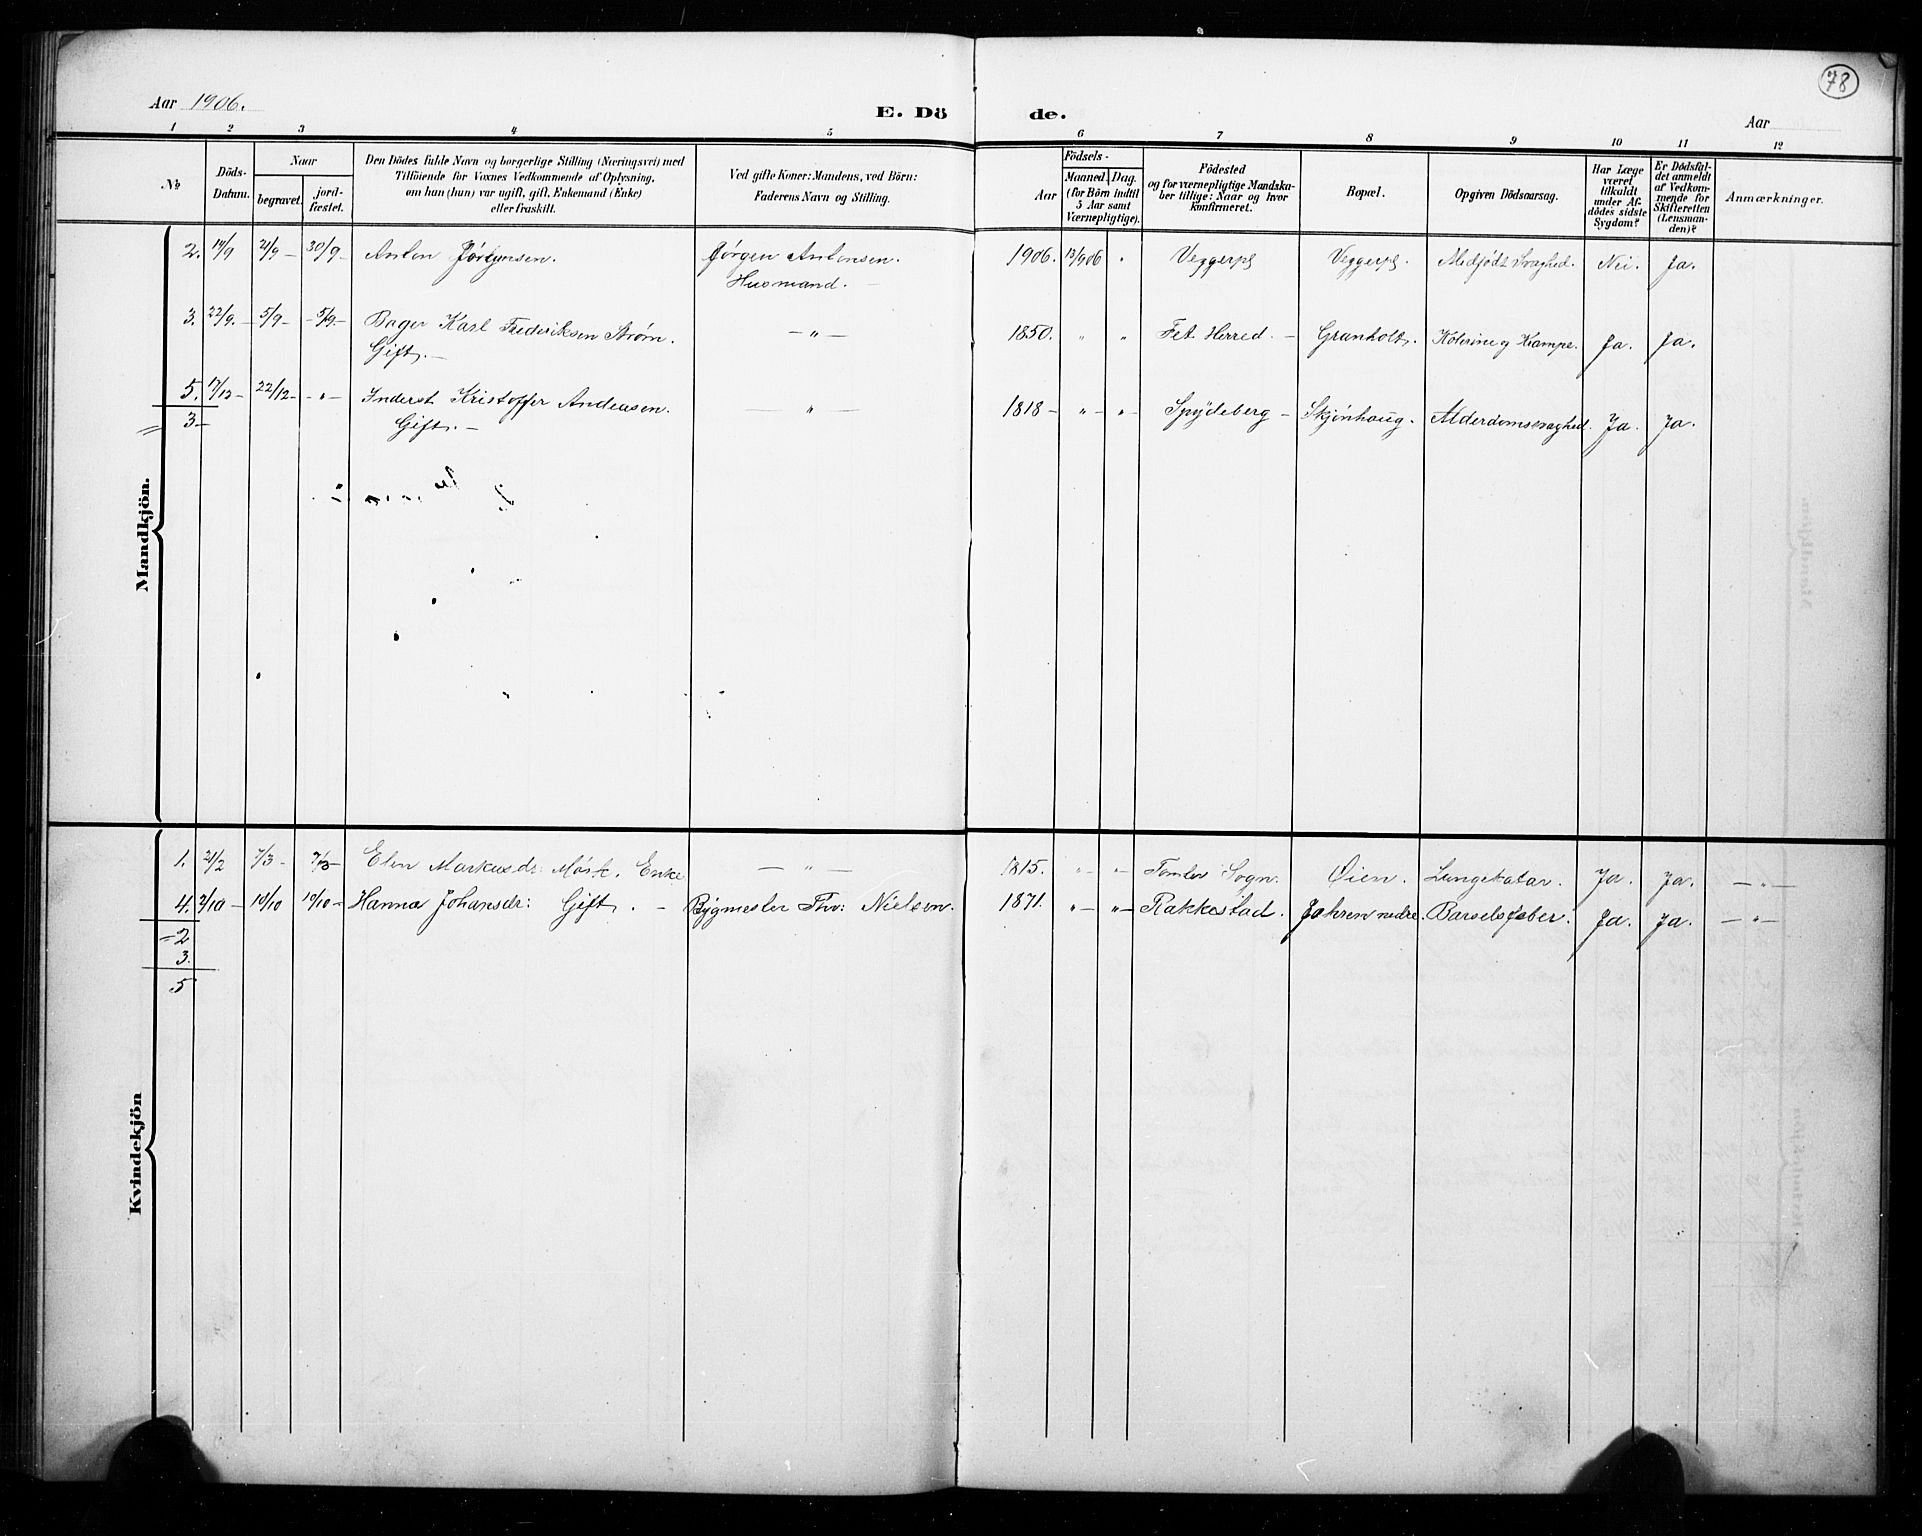 78
Aar 1906.
E. Dö de.
Aar
1 2 3 4 5 6 7 8 9 10 11 12
No
Döds-
Datum.
Naar
begravet.
jord-
fæstet.
Den Dödes fulde Navn og borgerlige Stilling (Næringsvei) med
Tilföiende for Voxnes Vedkommende af Oplysning,
om han (hun) var ugift, gift, Enkemand (Enke)
eller fraskilt.
Ved gifte Koner: Mandens, ved Börn:
Faderens Navn og Stilling.
Födsels-
Aar
Maaned. Dag.
(for Börn indtil
5 Aar samt
Værnepligtige).
Födested
og for værnepligtige Mandska-
ber tillige: Naar og hvor
konfirmeret.
Bopæl.
Opgiven Dödsaarsag.
Har Læge
været
tilkaldt
under Af-
dödes sidste
Sygdom?
Er Dödsfal-
det anmeldt
af Vedkom-
mende for
Skifteretten
(Lensman-
den)?
Anmærkninger.
Mandkjön.
2. 14/9 21/9 - 30/9 - Anton Jørgensen. Jørgen Antonsen. 1906. 13/906 " Veggerpl Veggerpl. Medfødt Svaghed. Nei. Ja.
Husmand. -
3. 22/9. - 5/9 - - 5/9. - Bager Karl Frederiksen Strøm. - " - 1850. " " Fet Herred. - Granholt. Ja. Ja.
Gift. -
5. 17/12 - 22/12 - - " - Inderst Kristoffer Andersen. - " - 1818 - " - " - Spydeberg - Skjønhaug. Alderdomssvaghed. Ja. Ja.
3 -
Gift. -
Kvindekjön
1. 21/2 7/3 - 7/3 - Elen Markusdr: Mørk. Enke - " - 1815. " - " - Tomter Sogn. Øien. Lungekatar. Ja. Ja. - " -
4. 2/10 - 10/10 10/10 - Hanna Johansdr: Gift. - Bygmester Thv: Nielsen. 1871. " - " - Rakkestad. Jahren nedre. Barselsfeber. Ja. Ja. - " -
= 2
3.
5